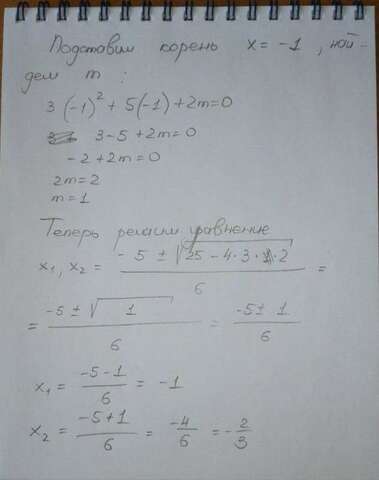 Подставим корень x = -1, най-
дем m :
3(-1)² + 5(-1) + 2m = 0
3 - 5 + 2m = 0
-2 + 2m = 0
2m = 2
m = 1
Теперь решим уравнение
x₁, x₂ = (-5 ± √(25 - 4·3·2))/6 =
= (-5 ± √1)/6 = (-5 ± 1)/6
x₁ = (-5 - 1)/6 = -1
x₂ = (-5 + 1)/6 = -4/6 = -2/3